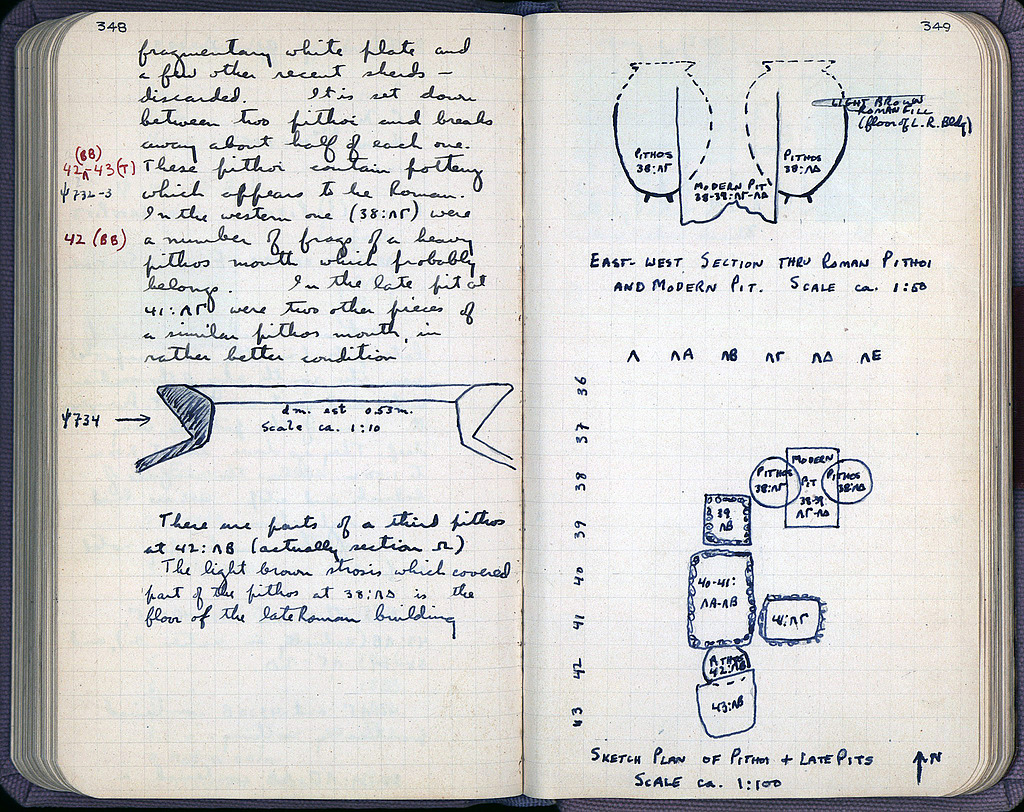 348
fragmentary white plate and
a few other recent sherds –
discarded. It is set down
between two pithoi and breaks
away about half of each one.
(BB)
42-43 (T) These pithoi contain pottery
Ψ732-3 which appears to be Roman.
In the western one (38:ΛΓ) were
42 (BB) a number of frags of a heavy
pithos mouth which probably
belongs. In the late pit at
41:ΛΓ were two other pieces of
a similar pithos mouth, in
rather better condition
Ψ734
dm. est 0.53m.
Scale ca. 1:10
There are parts of a third pithos
at 42:ΛB (actually section Ω)
The light brown strosis which covered
part of the pithos at 38:ΛΔ is the
floor of the late Roman building
349
LIGHT BROWN
ROMAN FILL
(floor of L.R. Bldg)
PITHOS
38:ΛΓ
PITHOS
38:ΛΔ
MODERN PIT
38-39:ΛΓ-ΛΔ
EAST-WEST SECTION THRU ROMAN PITHOI
AND MODERN PIT. SCALE ca. 1:50
Λ ΛA ΛB ΛΓ ΛΔ ΛE
36
37
38
39
40
41
42
43
MODERN
PIT
38-39:
ΛΓ-ΛΔ
PITHOS
38:ΛΓ
PITHOS
38:ΛΔ
39
ΛB
40-41:
ΛA-ΛB
41:ΛΓ
PITHOS
42:ΛB
43:ΛB
SKETCH PLAN OF PITHOI + LATE PITS
SCALE ca. 1:100
N